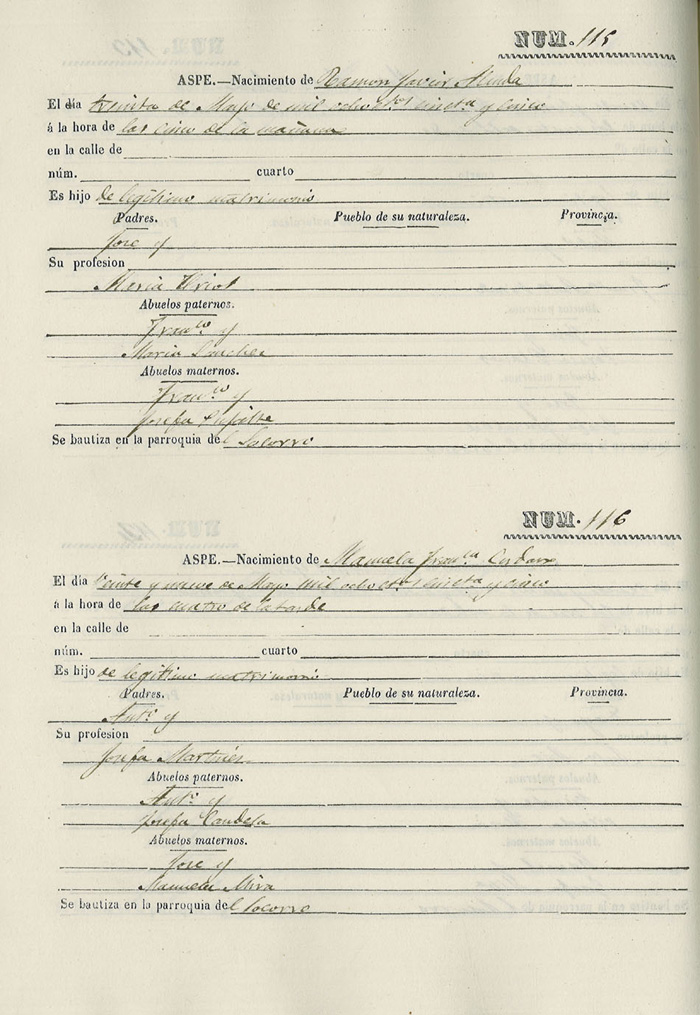 NUM. 115
ASPE.—Nacimiento de Ramon Javier
El día treinta de Mayo de mil ochoctos. cincta y cinco
á la hora de las cinco de la mañana
en la calle de
núm. cuarto
Es hijo de legitimo matrimonio
Padres. Pueblo de su naturaleza. Provincia.
Jose y
Su profesion
Maria
Abuelos paternos.
Franco y
Maria Sanchez
Abuelos maternos.
Franco y
Josefa
Se bautiza en la parroquia del Socorro
NUM. 116
ASPE.—Nacimiento de Manuela Franca
El día Veinte y nueve de Mayo mil ochoctos cincta y cinco
á la hora de las cuatro de la tarde
en la calle de
núm. cuarto
Es hijo de legitimo matrimonio
Padres. Pueblo de su naturaleza. Provincia.
Anto. y
Su profesion
Josefa Martines
Abuelos paternos.
Anto. y
Josefa Candela
Abuelos maternos.
Jose y
Manuela Mira
Se bautiza en la parroquia del Socorro